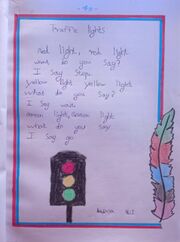 Traffic lights
red light, red light
what do you say?
I say stop
yellow light yellow light
what do you say?
I say wait
Green light, Green light
what do you say
I say go